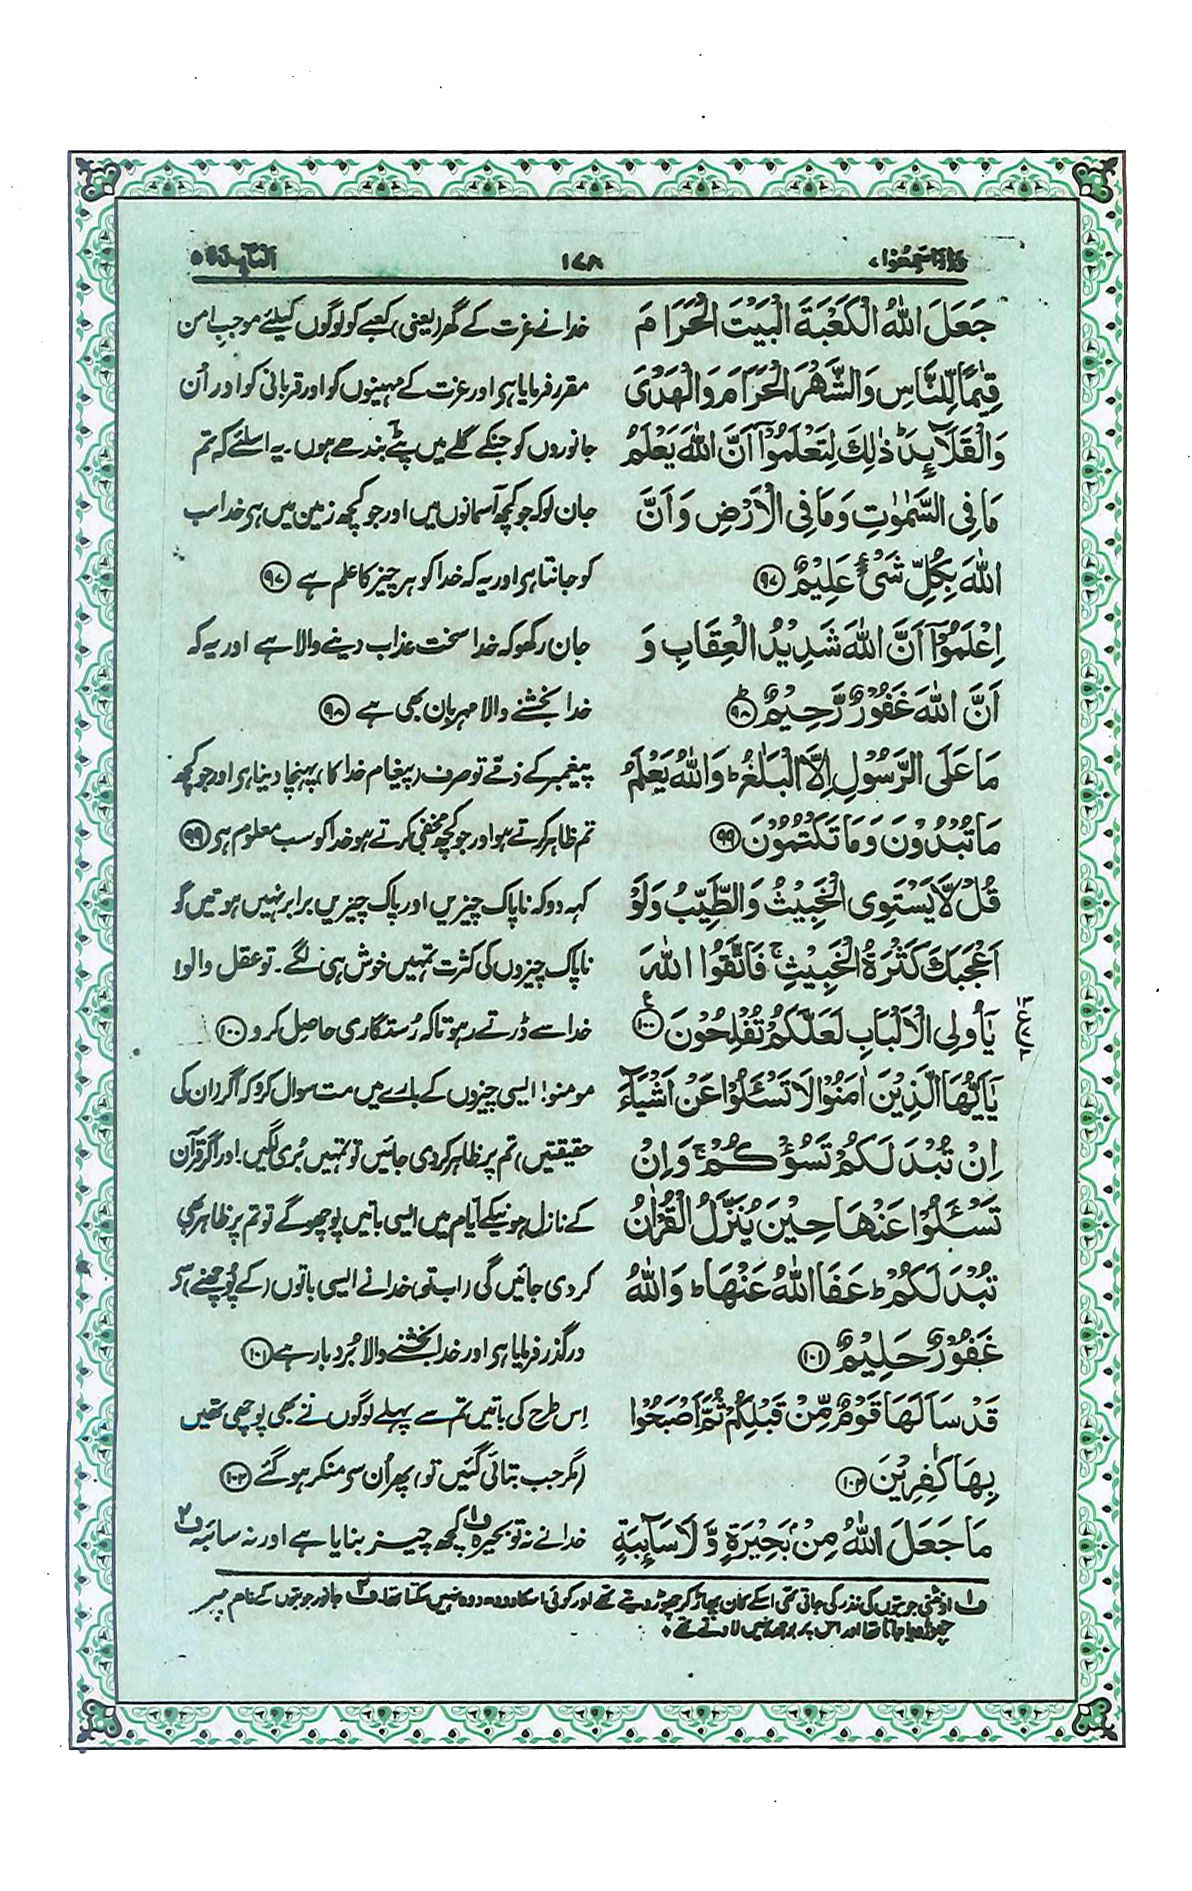 وَاِذَاسَمِعُوْا،
۱۷۸
اَلْمَآئِدَة ۵
جَعَلَ اللّٰهُ الْكَعْبَةَ الْبَيْتَ الْحَرَامَ
قِيٰمًا لِّلنَّاسِ وَالشَّهْرَ الْحَرَامَ وَالْهَدْىَ
وَالْقَلَآئِدَ ؕ ذٰلِكَ لِتَعْلَمُوْۤا اَنَّ اللّٰهَ يَعْلَمُ
مَا فِى السَّمٰوٰتِ وَمَا فِى الْاَرْضِ وَاَنَّ
اللّٰهَ بِكُلِّ شَىْءٍ عَلِيْمٌ ﴿۹۷﴾
اِعْلَمُوْۤا اَنَّ اللّٰهَ شَدِيْدُ الْعِقَابِ وَ
اَنَّ اللّٰهَ غَفُوْرٌ رَّحِيْمٌ ؕ ﴿۹۸﴾
مَا عَلَى الرَّسُوْلِ اِلَّا الْبَلٰغُ ؕ وَاللّٰهُ يَعْلَمُ
مَا تُبْدُوْنَ وَمَا تَكْتُمُوْنَ ﴿۹۹﴾
قُلْ لَّا يَسْتَوِى الْخَبِيْثُ وَالطَّيِّبُ وَلَوْ
اَعْجَبَكَ كَثْرَةُ الْخَبِيْثِ ۚ فَاتَّقُوا اللّٰهَ
يٰۤاُولِى الْاَلْبَابِ لَعَلَّكُمْ تُفْلِحُوْنَ ع ﴿۱۰۰﴾
يٰۤاَيُّهَا الَّذِيْنَ اٰمَنُوْا لَا تَسْـَٔلُوْا عَنْ اَشْيَآءَ
اِنْ تُبْدَ لَكُمْ تَسُؤْكُمْ ۚ وَاِنْ
تَسْـَٔلُوْا عَنْهَا حِيْنَ يُنَزَّلُ الْقُرْاٰنُ
تُبْدَ لَكُمْ ؕ عَفَا اللّٰهُ عَنْهَا ؕ وَاللّٰهُ
غَفُوْرٌ حَلِيْمٌ ﴿۱۰۱﴾
قَدْ سَاَلَهَا قَوْمٌ مِّنْ قَبْلِكُمْ ثُمَّ اَصْبَحُوْا
بِهَا كٰفِرِيْنَ ﴿۱۰۲﴾
مَا جَعَلَ اللّٰهُ مِنْۢ بَحِيْرَةٍ وَّلَا سَآئِبَةٍ
خدا نے عزت کے گھر (یعنی) کعبے کو لوگوں کیلئے موجب امن
مقرر فرمایا ہی اور عزت کے مہینوں کو اور قربانی کو اور اُن
جانوروں کو جنکے گلے میں پٹے بندھے ہوں۔ یہ اسلئے کہ تم
جان لو کہ جو کچھ آسمانوں میں اور جو کچھ زمین میں ہی خدا سب
کو جانتا ہی اور یہ کہ خدا کو ہر چیز کا علم ہے ﴿۹۷﴾
جان رکھو کہ خدا سخت عذاب دینے والا ہے اور یہ کہ
خدا بخشنے والا مہربان بھی ہے ﴿۹۸﴾
پیغمبر کے ذمّے تو صرف (پیغام خدا کا) پہنچا دینا ہی اور جو کچھ
تم ظاہر کرتے ہو اور جو کچھ مخفی کرتے ہو خدا کو سب معلوم ہی ﴿۹۹﴾
کہہ دو کہ ناپاک چیزیں اور پاک چیزیں برابر نہیں ہوتیں گو
ناپاک چیزوں کی کثرت تمہیں خوش ہی لگے۔ تو عقل والو!
خدا سے ڈرتے رہو تاکہ رُستگاری حاصل کرو ﴿۱۰۰﴾
مومنو! ایسی چیزوں کے بارے میں مت سوال کرو کہ اگر (ان کی
حقیقتیں) تم پر ظاہر کر دی جائیں تو تمہیں بُری لگیں! اور اگر قرآن
کے نازل ہونیکے ایام میں ایسی باتیں پوچھو گے تو تم پر ظاہر بھی
کر دی جائیں گی (اب تو) خدا نے ایسی باتوں (کے پوچھنے) سے
درگذر فرمایا ہی اور خدا بخشنے والا بُردبار ہے ﴿۱۰۱﴾
اِس طرح کی باتیں تم سے پہلے لوگوں نے بھی پوچھی تھیں
(مگر جب بتائی گئیں تو) پھر اُن سے منکر ہو گئے ﴿۱۰۲﴾
خدا نے نہ تو بحیرہ ف۱ کچھ چیز بنایا ہے اور نہ سائبہ ف۲
ف۱ اونٹنی جو بتوں کی نذر کی جاتی تھی اسکے کان پھاڑ کر چھوڑ دیتے تھے اور کوئی اسکا دودھ نہیں سکتا تھا۔ ف۲ جانور جو بتوں کے نام پر
چھوڑ دیا جاتا تھا اور اس پر بوجھ نہیں لادتے تھے۔